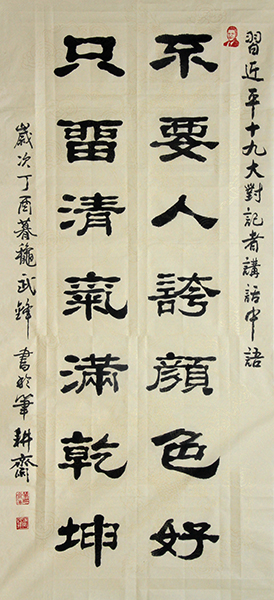 習近平十九大對記者講話中語
不要人誇顏色好
只留清氣滿乾坤
歲次丁酉暮穐武鋒書於筆耕齋